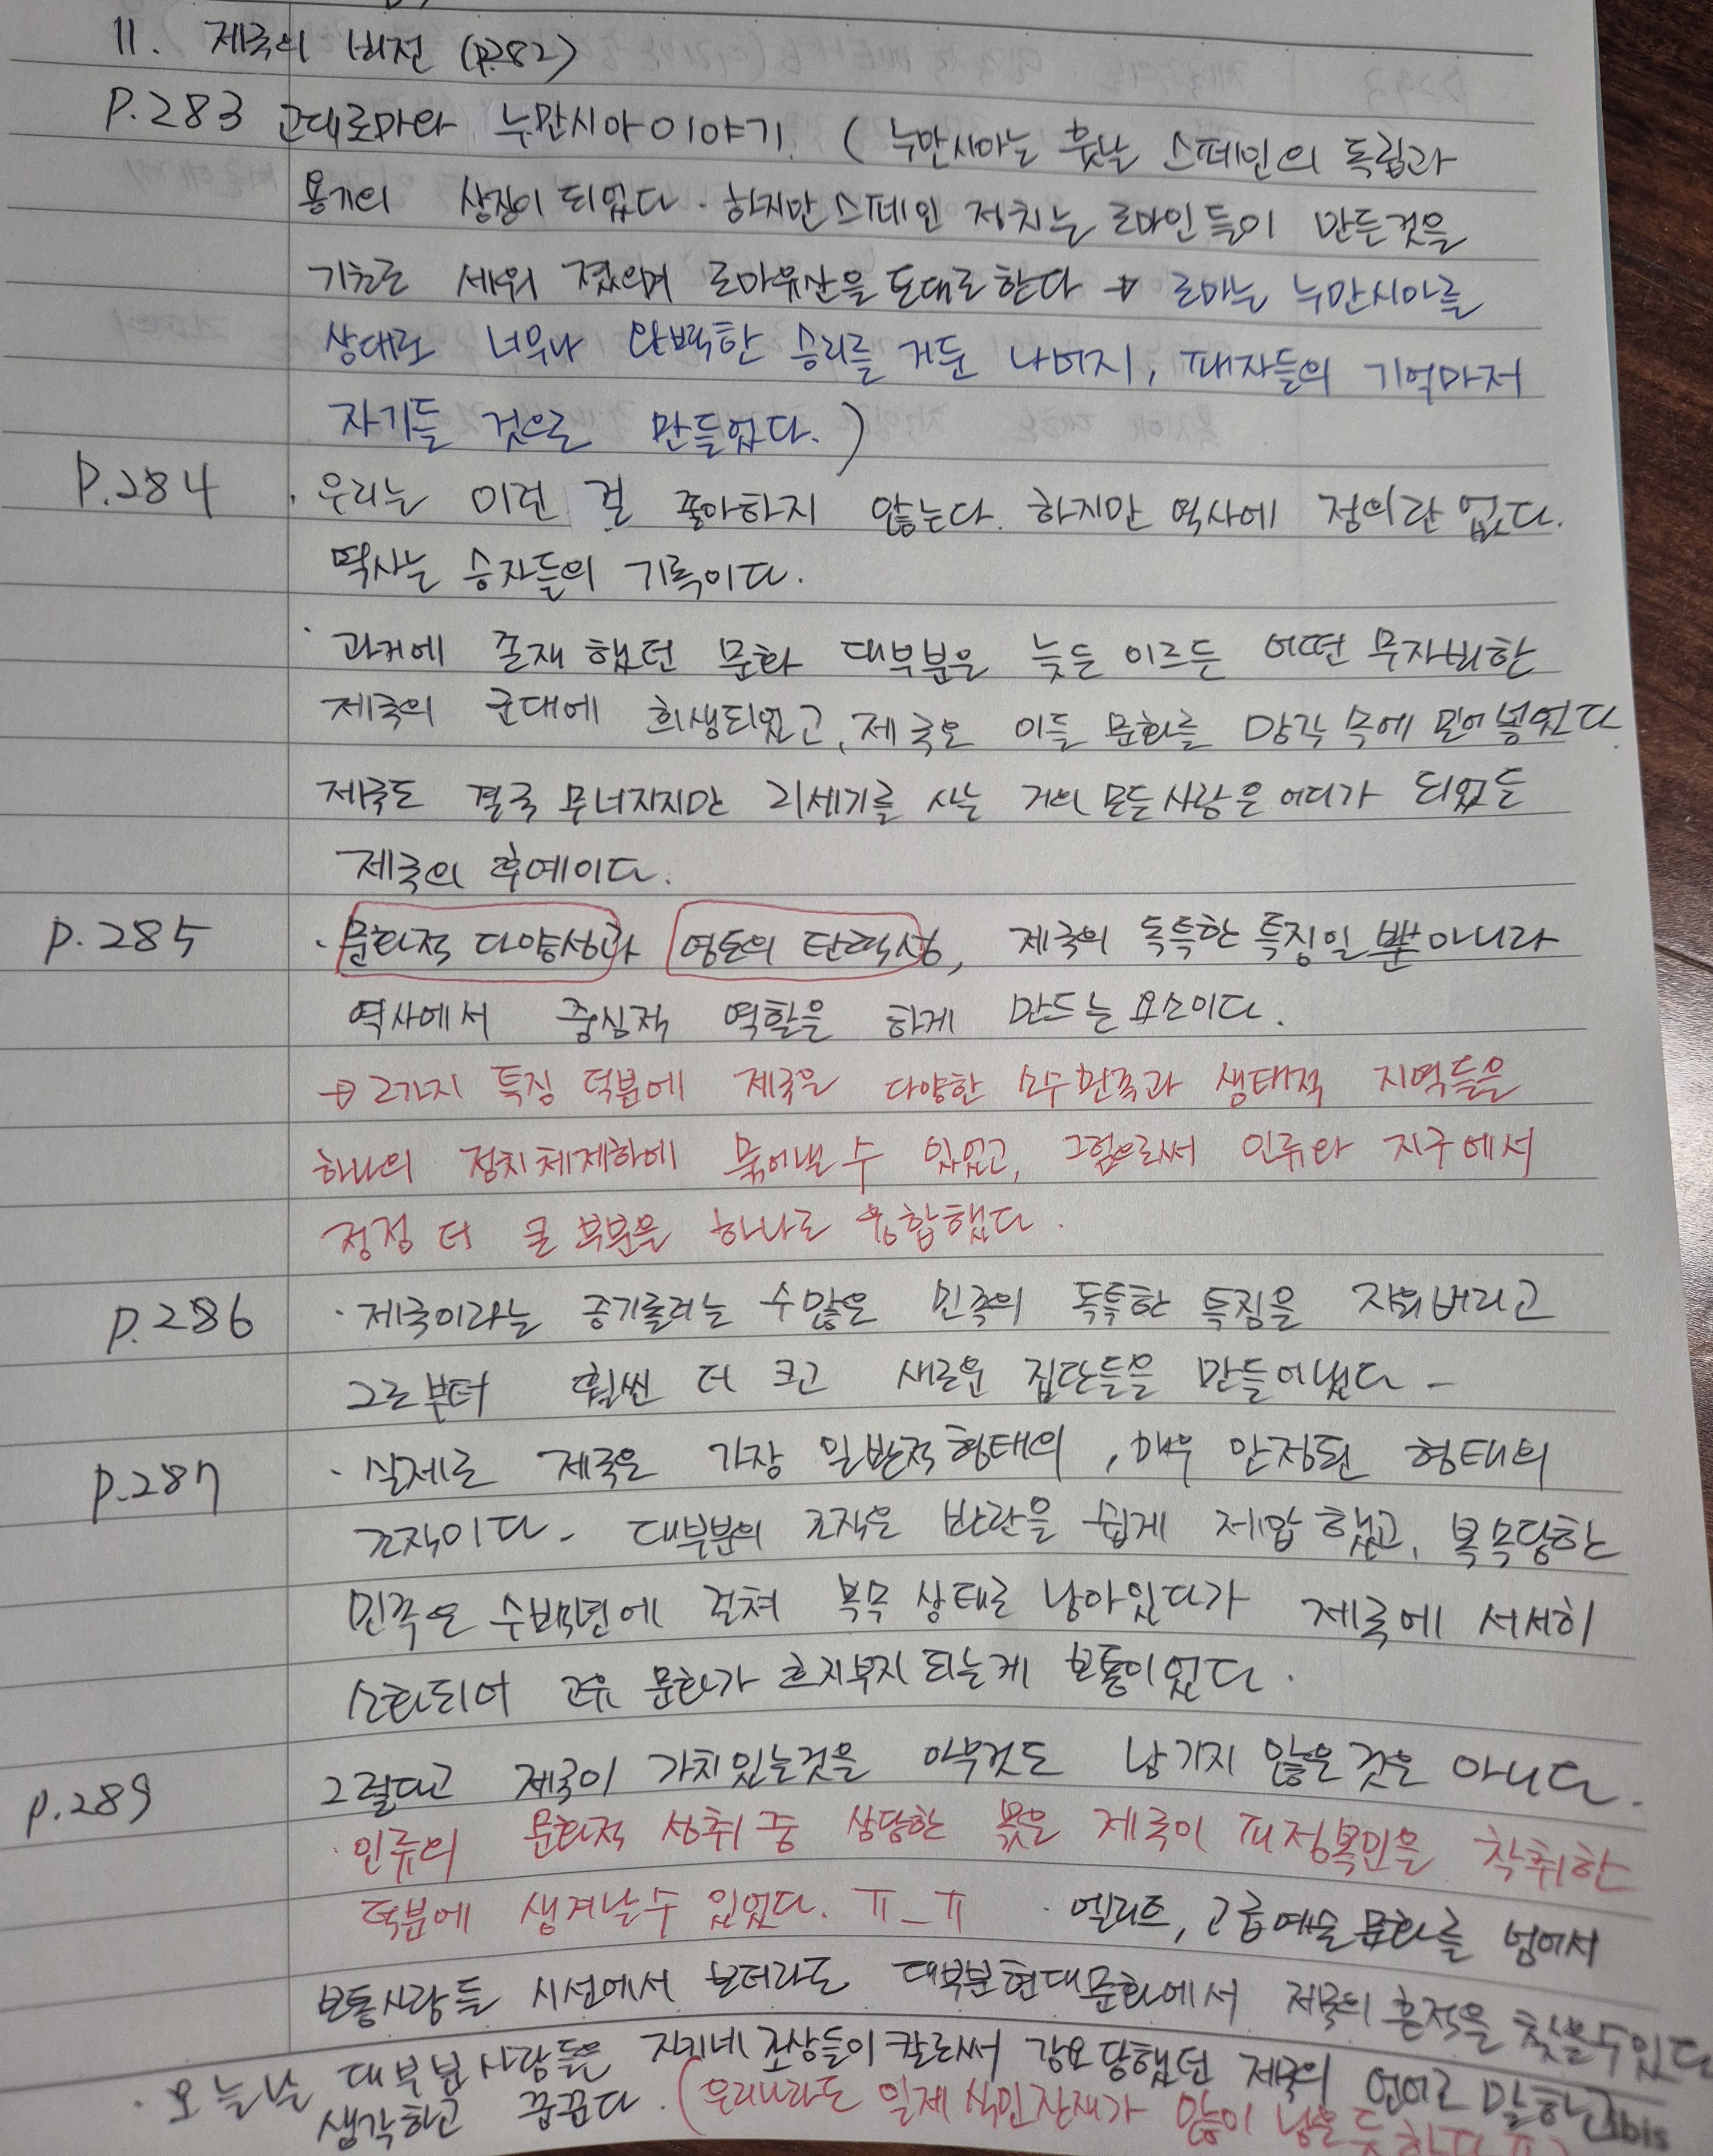 11. 제국의 비전 (p.282)
P.283 고대로마와 누만시아이야기. ( 누만시아는 훗날 스페인의 독립과
용기의 상징이 되었다. 하지만 스페인 정치는 로마인들이 만든것을
기초로 세워 졌으며 로마유산을 토대로 한다 → 로마는 누만시아를
상대로 너무나 완벽한 승리를 거둔 나머지, 패자들의 기억마저
자기들 것으로 만들었다. )
P.284 · 우리는 이런 걸 좋아하지 않는다. 하지만 역사에 정의란 없다.
역사는 승자들의 기록이다.
· 과거에 존재 했던 문화 대부분은 늦든 이르든 어떤 무자비한
제국의 군대에 희생되었고, 제국은 이들 문화를 망각 속에 밀어 넣었다
제국도 결국 무너지지만 21세기를 사는 거의 모든 사람은 어디가 되었든
제국의 후예이다.
P.285 · 문화적 다양성과 영토의 탄력성, 제국의 독특한 특징일 뿐아니라
역사에서 중심적 역할을 하게 만드는 요소이다.
→ 2가지 특징 덕분에 제국은 다양한 소수민족과 생태적 지역들을
하나의 정치체제하에 묶어낼 수 있었고, 그럼으로써 인류와 지구에서
점점 더 큰 부분을 하나로 융합했다.
P.286 · 제국이라는 증기롤러는 수많은 민족의 독특한 특징을 지워버리고
그로부터 훨씬 더 크고 새로운 집단들을 만들어냈다 -
P.287 · 실제로 제국은 가장 일반적형태의, 매우 안정된 형태의
조직이다 - 대부분의 조직은 반란을 쉽게 제압 했고, 복속당한
민족은 수백년에 걸쳐 복속 상태로 남아있다가 제국에 서서히
소화되어 고유 문화가 흐지부지 되는게 보통이었다.
P.289 그렇다고 제국이 가치있는것을 아무것도 남기지 않은것은 아니다.
· 인류의 문화적 성취 중 상당한 몫은 제국이 피정복민을 착취한
덕분에 생겨날수 있었다. ㅠ_ㅠ · 엘리트, 고급예술문화를 넘어서
보통사람들 시선에서 보더라도 대부분현대문화에서 제국의 흔적을 찾을수있다
· 오늘날 대부분 사람들은 자기네 조상들이 칼로써 강요 당했던 제국의 언어로 말하고
생각하고 꿈꾼다. (우리나라도 일제 식민잔재가 많이 남은 듯 하다 ㅠ)